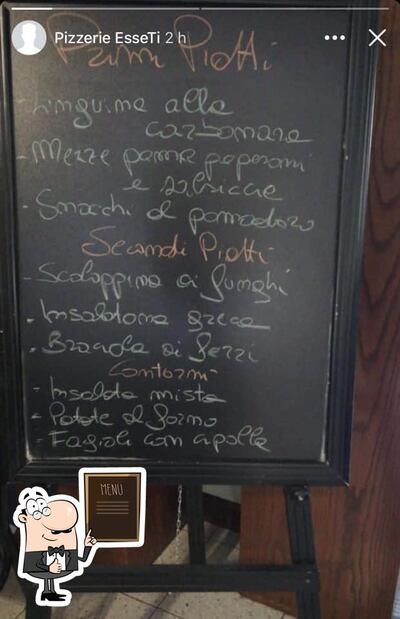 Pizzerie EsseTi 2 h
Primi Piatti
- Linguine alla
carbonara
- Mezze penne peperoni
e salsicce
- Gnocchi al pomodoro
Secondi Piatti
- Scaloppina ai funghi
- Insalatona greca
- Braciola ai ferri
Contorni
- Insalata mista
- Patate al forno
- Fagioli con cipolla
MENU